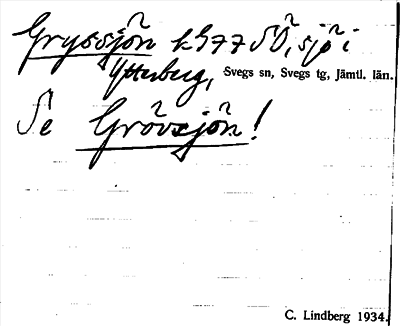 Gryssjön k 577 SÖ, sjö i
Ytterberg, Svegs sn, Svegs tg, Jämtl. län.
Se Grövsjön!
C. Lindberg 1934.